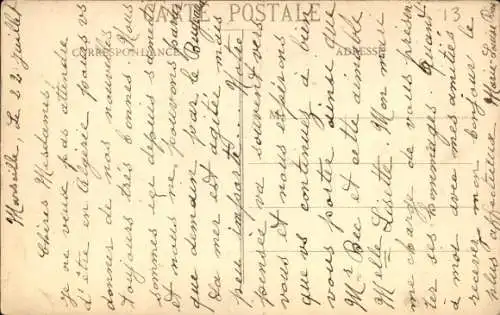 CARTE POSTALE
CORRESPONDANCE
ADRESSE
13
Marseille, Le 22 juillet
Chères Mesdames,
Je ne veux pas attendre
d'être en Algérie pour vs
donner de nos nouvelles
toujours très bonnes. Nous
sommes ici depuis samedi
et nous ne pouvons partir
que demain par le
La mer est agitée mais
peu importe. Notre
pensée va souvent vers
vous et nous espérons
que vs continuez à bien
vous porter ainsi que
Mr Bec et cette aimable
Melle Lisette. Mon mari
me charge de vous présen
ter ses hommages. Quant
à moi avec mes amitiés
recevez mon bonjour le
plus affectueux